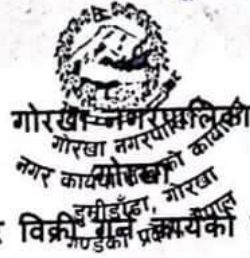 गोरखा नगरपालिका
गोरखा
गोरखा नगरपालिका
नगर कार्यपालिकाको कार्यालय
डुम्रीडाँडा, गोरखा
गण्डकी प्रदेश, नेपाल
विक्री गर्ने कार्यको